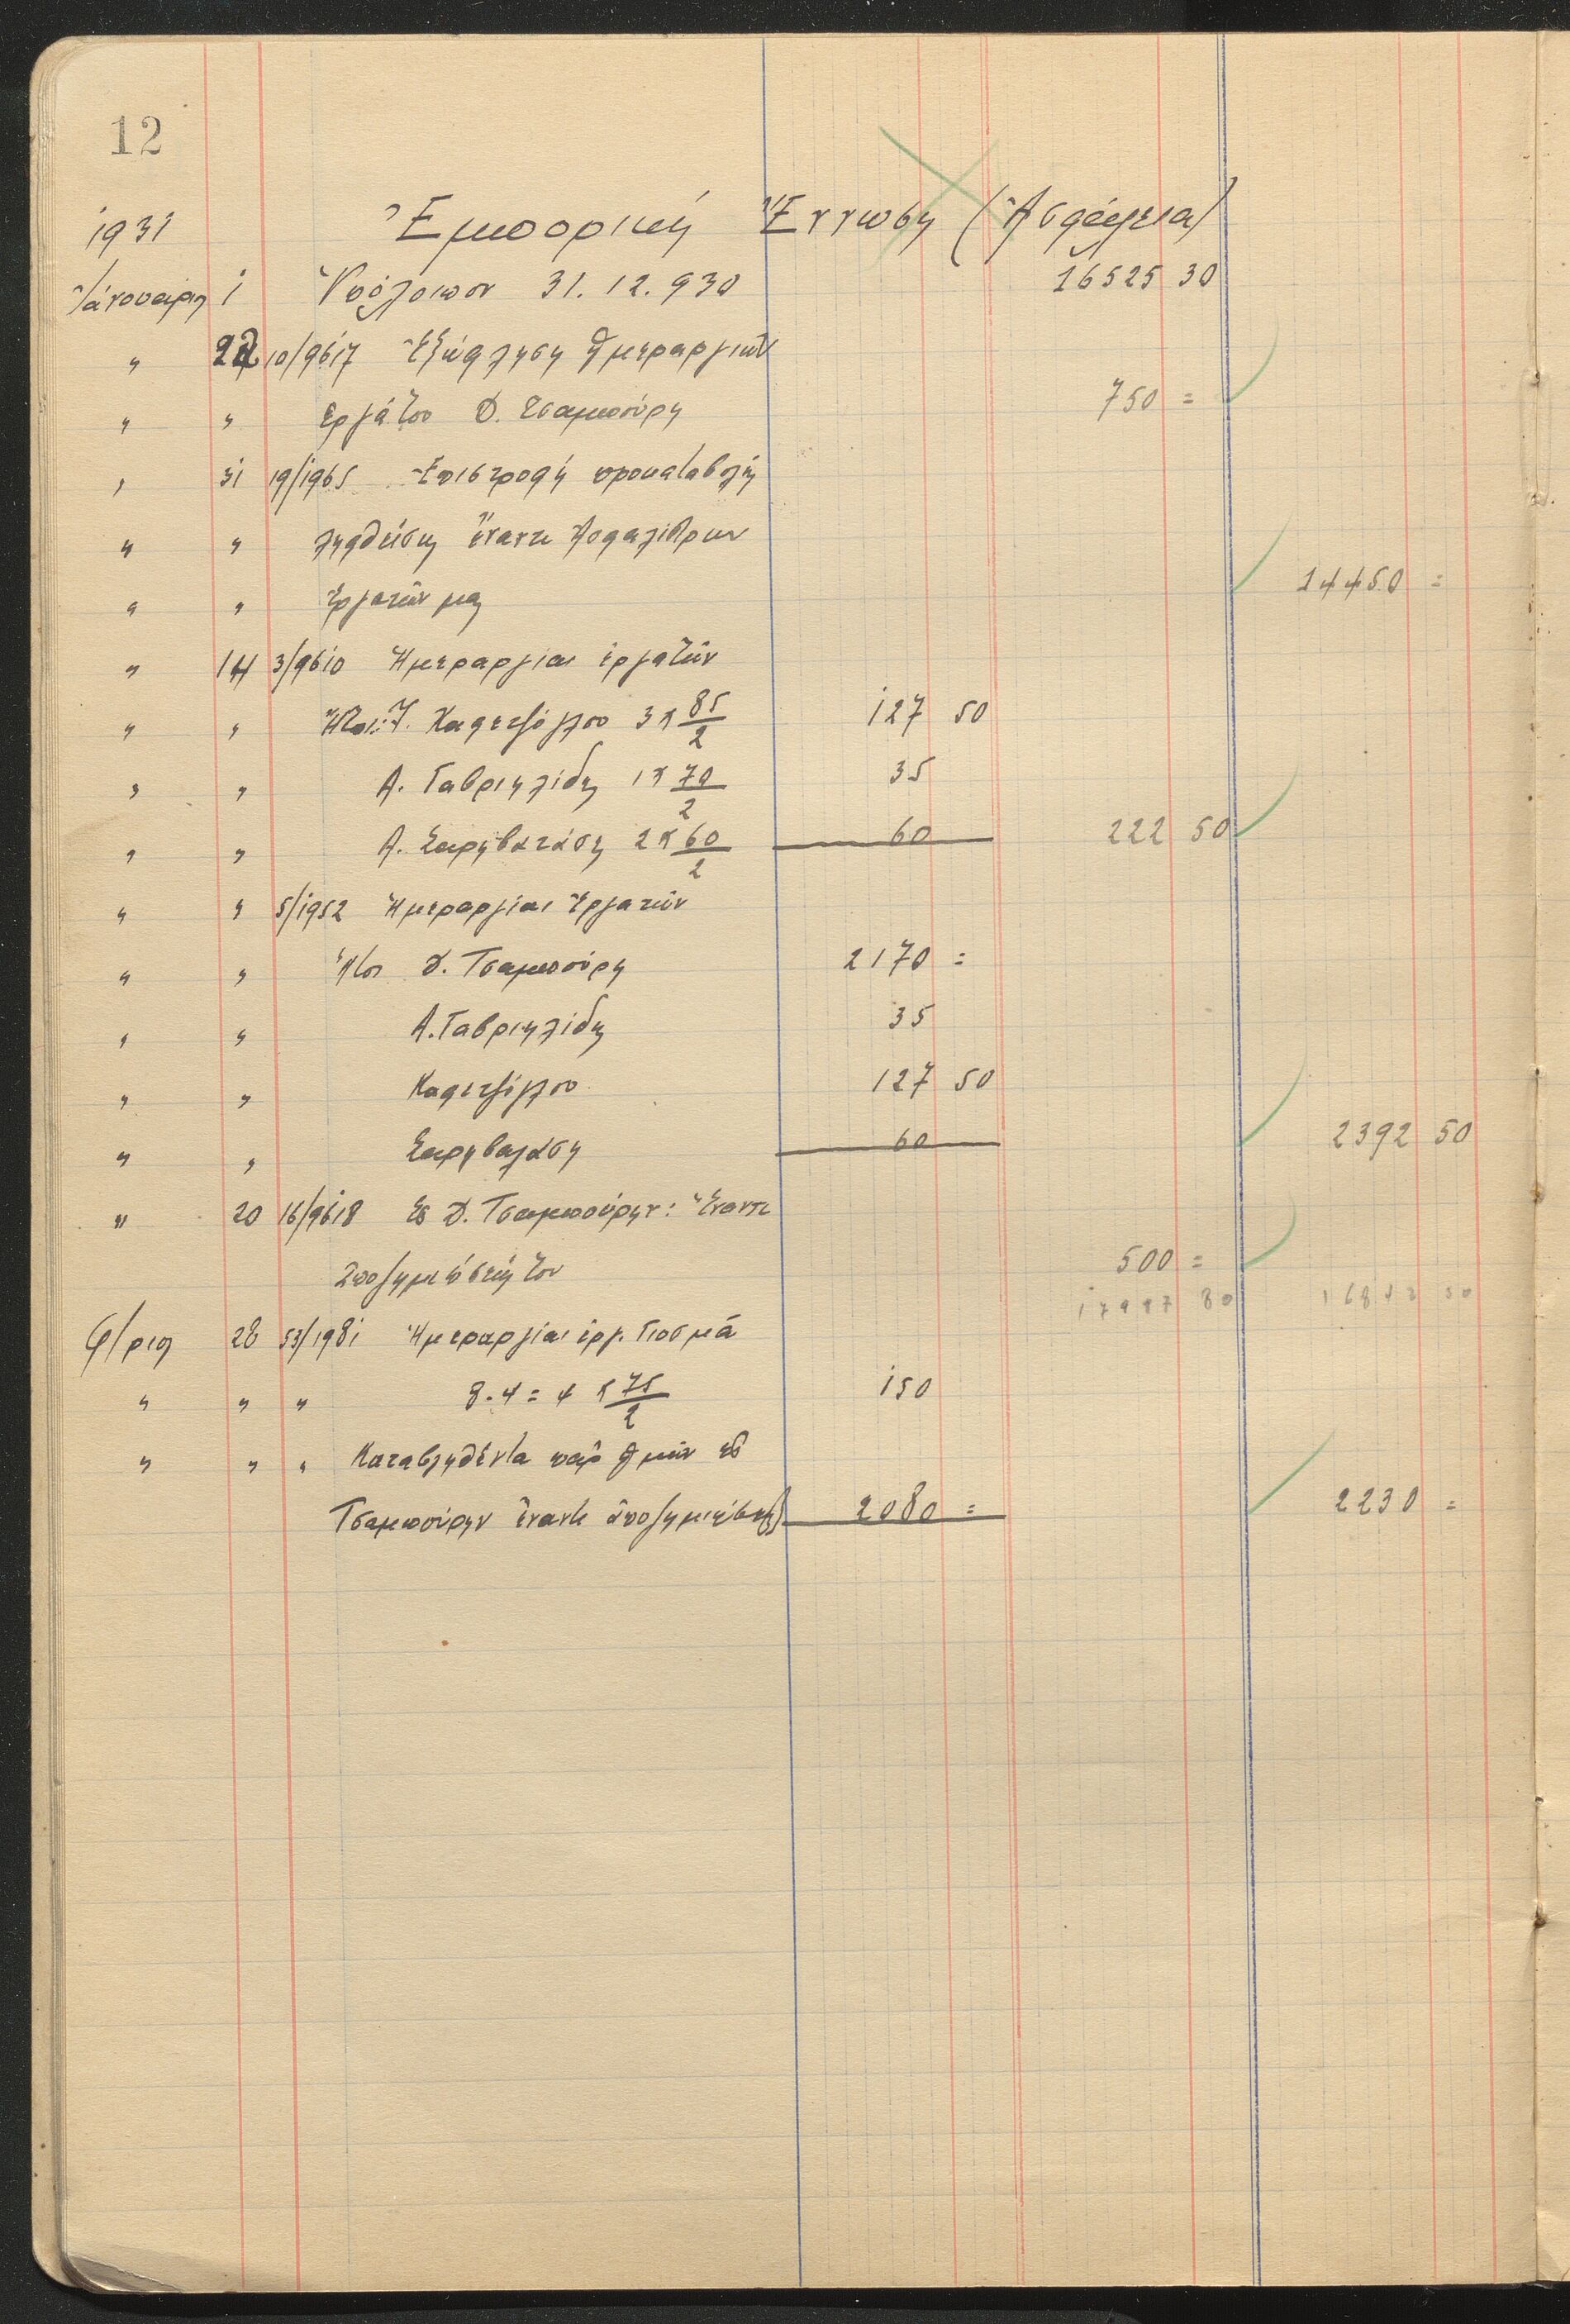 12
1931 Ἐμπορικὴ Ἕνωσις (Ἀσφάλεια)
Ἰανουαρίου 1 Ὑπόλοιπον 31.12.930 16525 30
" 22 10/9617 Ἐξώφλησις ἡμεραργιῶν
" " ἐργάτου Δ. Τσαμπούρη 750 =
" 31 19/1965 Ἐπιστροφὴ προκαταβολῆς
" " ληφθείσης ἔναντι
" " ἐργατῶν μας 14450 =
" 14 3/9610 Ἡμεραργίαι ἐργατῶν
" " Ἤτοι: Καφετζόγλου 3 x 85/2 127 50
" " Α. Γαβριηλίδης 1 x 70/2 35
" " Α. 2 x 60/2 60 222 50
" " 5/1952 Ἡμεραργίαι ἐργατῶν
" " Ἤτοι Δ. Τσαμπούρη 2170 =
" " Α. Γαβριηλίδης 35
" " Καφετζόγλου 127 50
" " 60 2392 50
" 20 16/9618 Εἰς Δ. Τσαμπούρην: Ἔναντι
ἀποζημιώσεώς του 500 =
17997 80 16842 50
Φ/ριος 28 53/1981 Ἡμεραργίαι ἐργ.
" " " 8.4 = 4 x 75/2 150
" " " Καταβληθέντα παρ' ἡμῶν εἰς
Τσαμπούρην ἔναντι ἀποζημιώσεως 2080 = 2230 =